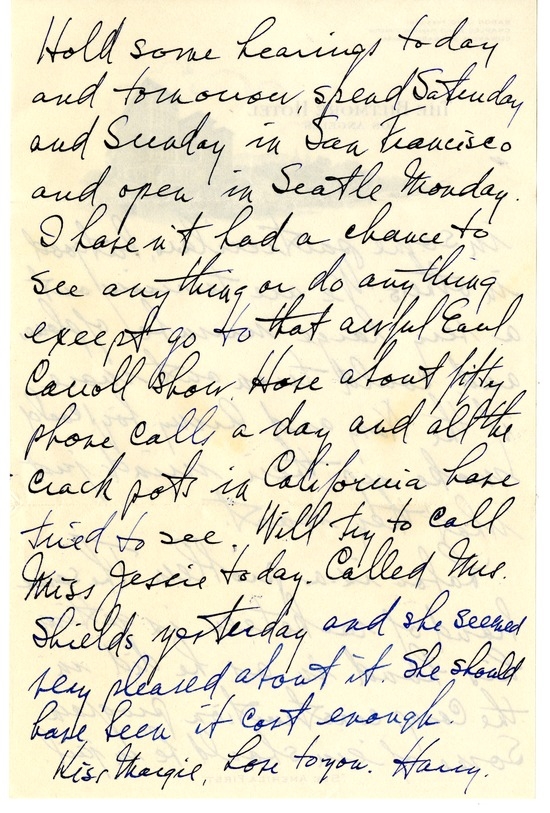 Hold some hearings today
and tomorrow, spend Saturday
and Sunday in San Francisco
and open in Seatle Monday.
I haven't had a chance to
see anything or do anything
except go to that awful Earl
Caroll show. Have about fifty
phone calls a day and all the
crack pots in California have
tried to see. Will try to call
Miss Jessie today. Called Mrs.
Shields yesterday and she seemed
very pleased about it. She should
have been it cost enough.
Kiss Margie, Love to you. Harry.